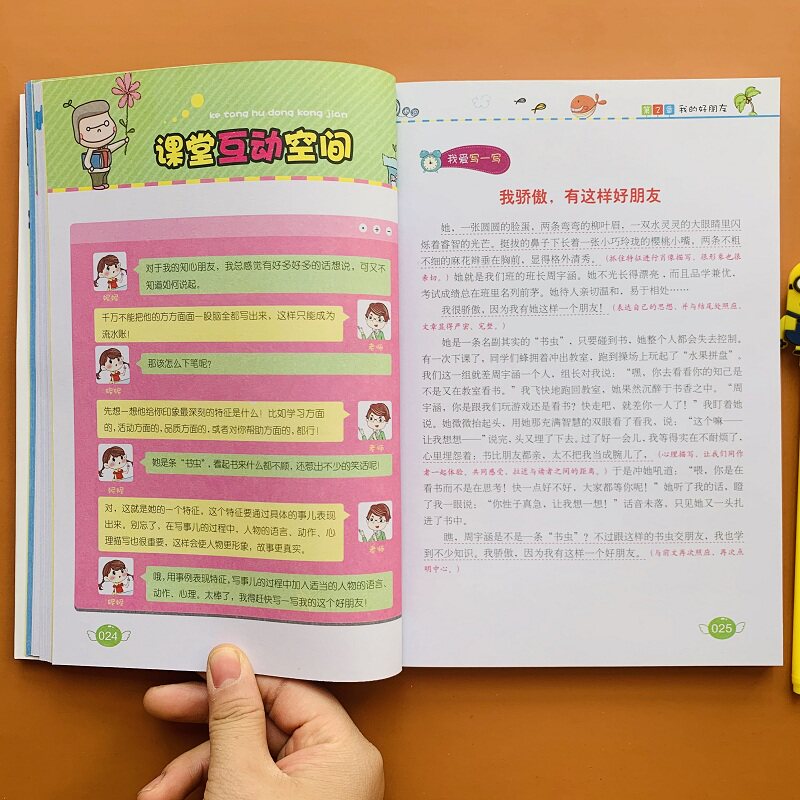 ke tong hu dong kong jian
课堂互动空间
对于我的知心朋友，我总感觉有好多好多的话想说，可又不
知道如何说起。
妮妮
千万不能把他的方方面面一股脑全都写出来，这样只能成为
流水账！
老师
那该怎么下笔呢？
妮妮
先想一想他给你印象最深刻的特征是什么！比如学习方面
的，活动方面的，品质方面的，或者对你帮助方面的，都行！
老师
她是条“书虫”，看起书来什么都不顾，还惹出不少的笑话呢！
妮妮
对，这就是她的一个特征，这个特征要通过具体的事儿表现
出来，别忘了，在写事儿的过程中，人物的语言、动作、心
理描写也很重要，这样会使人物更形象，故事更真实。
老师
哦，用事例表现特征，写事儿的过程中加入适当的人物的语言、
动作、心理。太棒了，我得赶快写一写我的这个好朋友！
妮妮
024
第2章 我的好朋友
我爱写一写
我骄傲，有这样好朋友
她，一张圆圆的脸蛋，两条弯弯的柳叶眉，一双水灵灵的大眼睛里闪
烁着睿智的光芒。挺拔的鼻子下长着一张小巧玲珑的樱桃小嘴，两条不粗
不细的麻花辫垂在胸前，显得格外清秀。（抓住特征进行肖像描写，很形象也很
亲切。）她就是我们班的班长周宇涵。她不光长得漂亮，而且品学兼优，
考试成绩总在班里名列前茅。她待人亲切温和，易于相处……
我很骄傲，因为我有她这样一个朋友！（表达自己的思想，并与结尾处照应，
文章显得严密、完整。）
她是一条名副其实的“书虫”，只要碰到书，她整个人都会失去控制。
有一次下课了，同学们蜂拥着冲出教室，跑到操场上玩起了“水果拼盘”。
我们这一组就差周宇涵一个人，组长对我说：“嘿，你去看看你的知己是
不是又在教室看书。”我飞快地跑回教室，她果然沉醉于书香之中。“周
宇涵，你是跟我们玩游戏还是看书？快走吧，就差你一人了！”我盯着她
说。她微微抬起头，用她那充满智慧的双眼看了看我，说：“这个嘛——
让我想想——”说完，头又埋了下去。过了好一会儿，我等得实在不耐烦了，
心里埋怨着：书比朋友都亲，太不把我当成腕儿了，（心理描写，让我们同作
者一起体验，共同感受，拉近与读者之间的距离。）于是冲她吼道：“喂，你是在
看书而不是在思考！快一点好不好，大家都等你呢！”她听了我的话，瞪
了我一眼说：“你性子真急，让我想一想！”话音未落，只见她又一头扎
进了书中。
瞧，周宇涵是不是一条“书虫”？不过跟这样的书虫交朋友，我也学
到不少知识。我骄傲，因为我有这样一个好朋友。（与前文再次照应，再次点
明中心。）
025